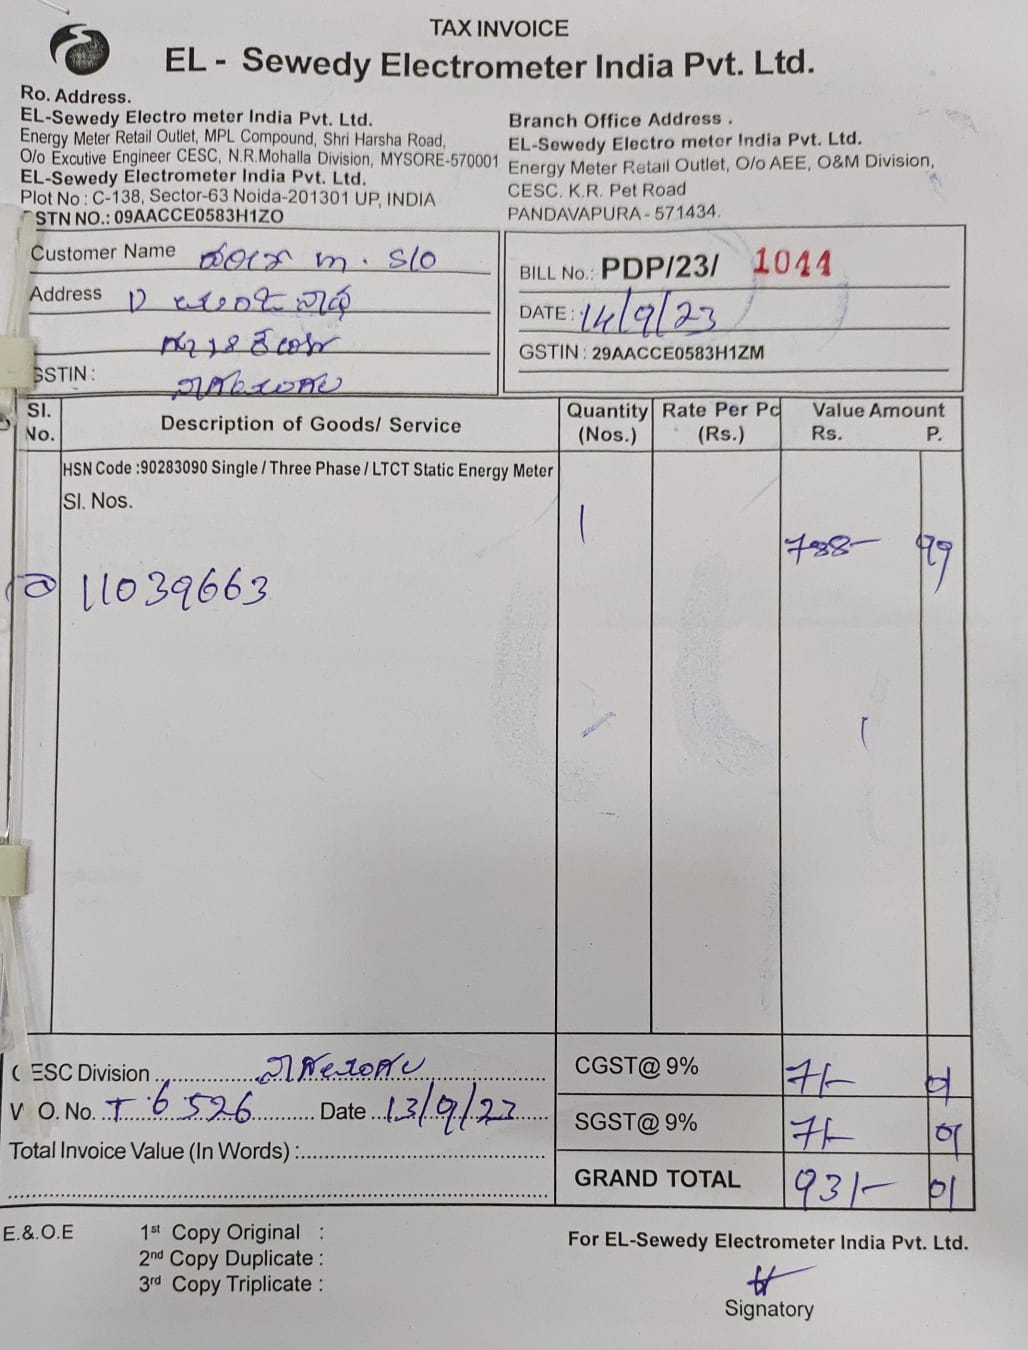 TAX INVOICE
EL - Sewedy Electrometer India Pvt. Ltd.
Ro. Address.
EL-Sewedy Electro meter India Pvt. Ltd.
Energy Meter Retail Outlet, MPL Compound, Shri Harsha Road,
O/o Excutive Engineer CESC, N.R.Mohalla Division, MYSORE-570001
EL-Sewedy Electrometer India Pvt. Ltd.
Plot No : C-138, Sector-63 Noida-201301 UP, INDIA
STN NO.: 09AACCE0583H1ZO
Branch Office Address .
EL-Sewedy Electro meter India Pvt. Ltd.
Energy Meter Retail Outlet, O/o AEE, O&M Division,
CESC. K.R. Pet Road
PANDAVAPURA - 571434.
Customer Name m. S/o
Address
GSTIN :
BILL No.: PDP/23/ 1044
DATE : 14/9/23
GSTIN : 29AACCE0583H1ZM
Sl. No. Description of Goods/ Service Quantity (Nos.) Rate Per Pc (Rs.) Value Amount Rs. P.
HSN Code :90283090 Single / Three Phase / LTCT Static Energy Meter
Sl. Nos.
1 788- 99
11039663
CESC Division
W.O. No. T 6526 Date 13/9/23
Total Invoice Value (In Words) :
CGST@ 9% 71- 01
SGST@ 9% 71- 01
GRAND TOTAL 931- 01
E.&.O.E
1st Copy Original :
2nd Copy Duplicate :
3rd Copy Triplicate :
For EL-Sewedy Electrometer India Pvt. Ltd.
Signatory